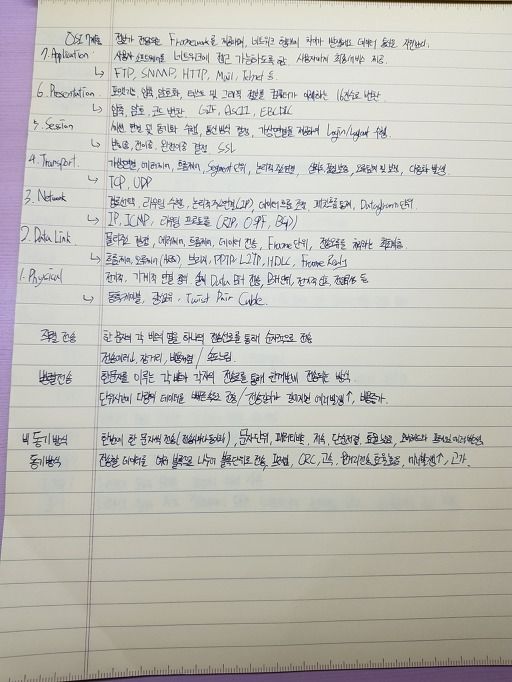 OSI 7계층 전송가 전송으로 Framework를 제공하며, 네트워크 데이터 통신을 지원한다.
7. Application 사용자 소프트웨어를 네트워크에 접근 가능하도록 함 사용자에게 최종서비스 제공
↳ FTP, SNMP, HTTP, Mail, Telnet 등
6. Presentation 포맷기능, 압축, 암호화, 텍스트 및 그래픽 정보를 컴퓨터가 이해하는 16진수로 변환
↳ 압축, 암호, 코드 변환, GIF, ASCII, EBCDIC
5. Session 세션 연결 및 동기화 수행, 통신방식 결정, 가상연결을 제공하여 Login/Logout 수행
↳ 반이중, 전이중, 완전이중 결정 SSL
4. Transport 가상연결, 에러제어, 흐름제어, Segment단위, 논리적주소연결
↳ TCP, UDP
3. Network 경로선택, 라우팅 수행, 논리적주소연결(IP), 데이터 흐름 조절, Datagram단위
↳ IP, ICMP, 라우팅 프로토콜 (RIP, OSPF, BGP)
2. Data Link 물리주소 결정, 에러제어, 흐름제어, 데이터 전송, Frame단위, 전송오류를
↳ 흐름제어, 오류제어, 브리지, PPTP, L2TP, HDLC, Frame Relay
1. Physical 전기적, 기계적 연결 정의 실제 Data Bit 전송, Bit단위, 전기적신호 등
↳ 동축케이블, 광섬유, Twist Pair Cable.
직렬 전송 한 문자의 각 비트 열을 하나의 전송선로를 통해 순차적으로 전송
전송에러↓, 장거리, 비용저렴 / 속도느림
병렬전송 한문자를 이루는 각 비트가 각자의 전송로를 통해 한꺼번에 전송되는 방식
단위시간에 다량의 데이터를 빠른속도로 전송 / 전송길이가 길어지면 에러발생↑, 비용증가.
비동기방식 한번에 한 문자씩 전송, 문자단위, 패리티비트, 저속, 단순저렴
동기방식 전송할 데이터를 여러 블록으로 나누어 블록단위로 전송, 프레임, CRC, 고속, 원거리전송, 고가.